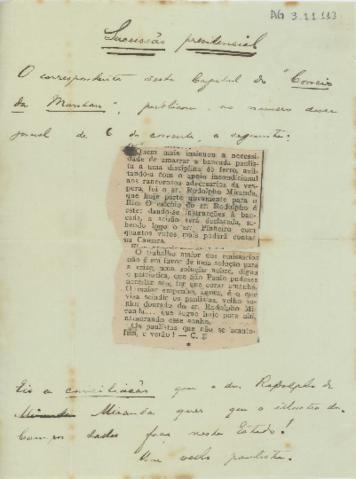 AG 3.11.113
Successão presidencial
O correspondente desta Capital do "Correio
da Manhan", publicou no numero desse
jornal de 6 do corrente, o seguinte:
Quem mais insinuou a necessi-
dade de amarrar a bancada paulis-
ta a uma disciplina de ferro, evi-
tando-a com o apoio incondicional
aos rancorosos adversarios da ves-
pera, foi o sr. Rodolpho Miranda,
que hoje parte novamente para o
Rio. O sr. Rodolpho é
este: dando-se instrucções á ban-
cada, a scisão será declarada, sa-
bendo logo o sr. Pinheiro com
quantos votos mais poderá contar
na Camara.
O trabalho maior dos emissarios
não é em favor de uma solução para
a crise, uma solução nobre, digna
e patriotica, que São Paulo pudesse
acceitar sem ter que corar amanhã.
O maior empenho, agora, é o que
visa scindir os paulistas, velho so-
nho dourado do sr. Rodolpho Mi-
randa... que segue hoje para ahi,
acariciando esse sonho.
Os paulistas que não se acaute-
lem, e verão! — C.
Eis a conciliação que o dr. Rodolpho de
Miranda Miranda quer que o illustre dr.
Campos Salles faça neste Estado!
Um velho paulista.